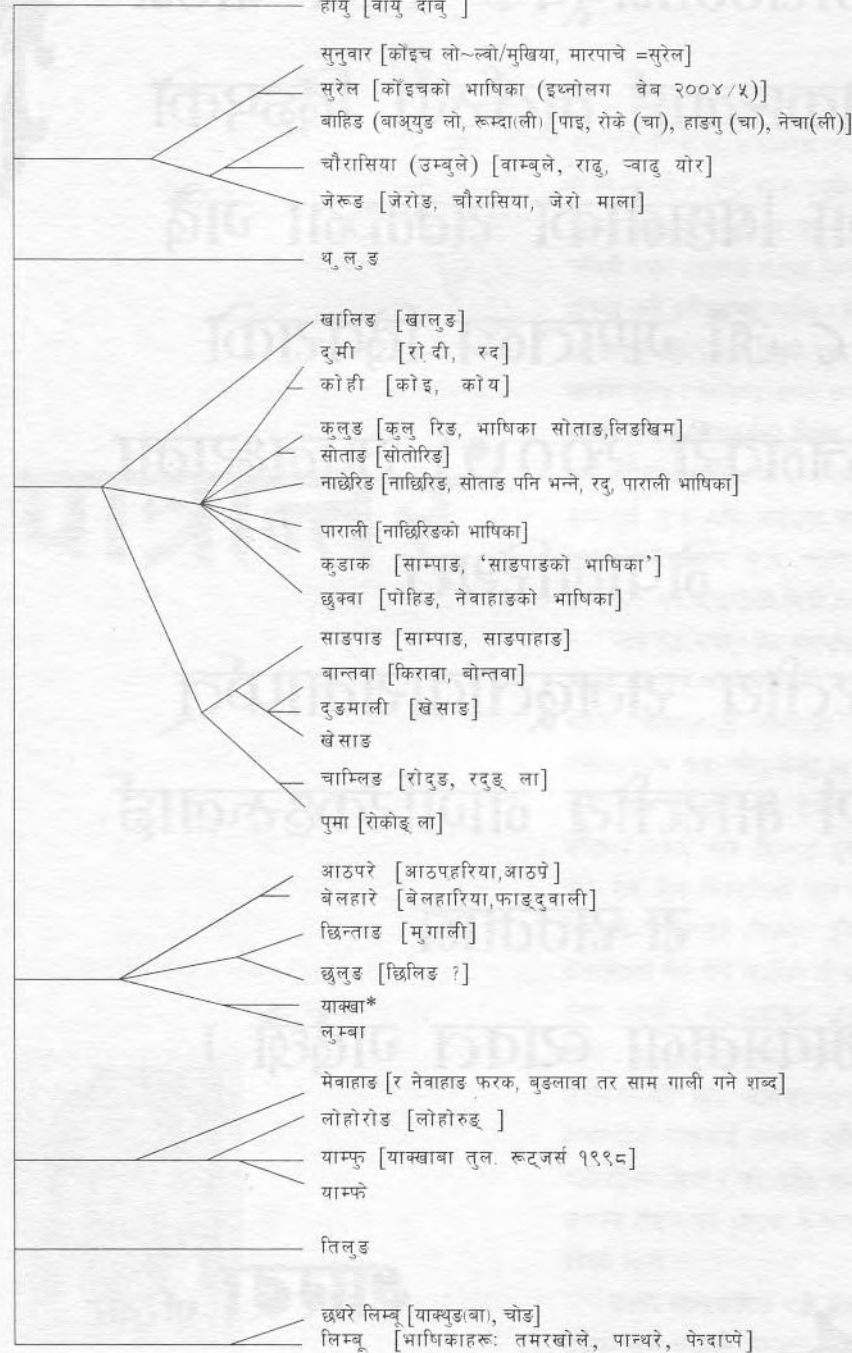 हायु [वायु दाबु ]
सुनुवार [कोँइच लो~ल्वो/मुखिया, मारपाचे =सुरेल]
सुरेल [कोँइचको भाषिका (इथ्नोलग वेब २००४/५)]
बाहिङ (बाअ्युङ लो, रूम्दा(ली) [पाइ, रोके (चा), हाङगु (चा), नेचा(ली)]
चौरासिया (उम्बुले) [वाम्बुले, राढु, ऱ्वाढु योर]
जेरूङ [जेरोङ, चौरासिया, जेरो माला]
थुलुङ
खालिङ [खालुङ]
दुमी [रो.दी, रद]
कोही [कोइ, कोय]
कुलुङ [कुलु रिङ, भाषिका सोताङ,लिङखिम]
सोताङ [सोतोरिङ]
नाछेरिङ [नाछिरिङ, सोताङ पनि भन्ने, रदु, पाराली भाषिका]
पाराली [नाछिरिङको भाषिका]
कुङाक [साम्पाङ, ‘साङपाङको भाषिका’]
छुक्वा [पोहिङ, नेवाहाङको भाषिका]
साङपाङ [साम्पाङ, साङपाहाङ]
बान्तवा [किरावा, बोन्तवा]
दुङमाली [खेसाङ]
खेसाङ
चाम्लिङ [रोदुङ, रदुङ् ला]
पुमा [रोकोङ् ला]
आठपरे [आठपहरिया,आठप्रे]
बेलहारे [बेलहारिया,फाङ्दुवाली]
छिन्ताङ [मुगाली]
छुलुङ [छिलिङ ?]
याक्खा*
लुम्बा
मेवाहाङ [र नेवाहाङ फरक, बुङलावा तर साम गाली गने शब्द]
लोहोरोङ [लोहोरुङ् ]
याम्फु [याक्खाबा तुल. रूट्जर्स १९९८]
याम्फे
तिलुङ
छथरे लिम्बू [याक्थुङ(बा), चोङ]
लिम्बू [भाषिकाहरू: तमरखोले, पान्थरे, फेदाप्पे]